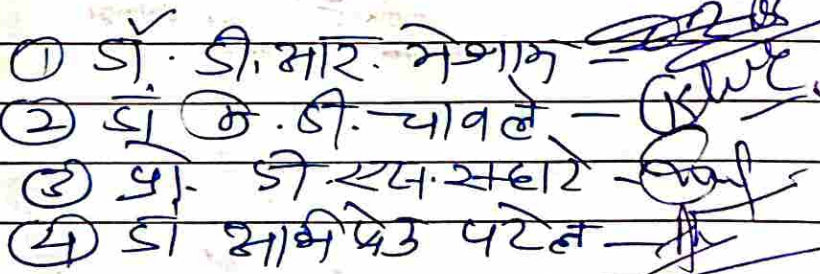 ① डॉ. डी. आर. मेश्राम -
② डॉ बी. टी. चावले -
③ प्रा. डी. एस. सहारे -
④ डॉ पटेल -